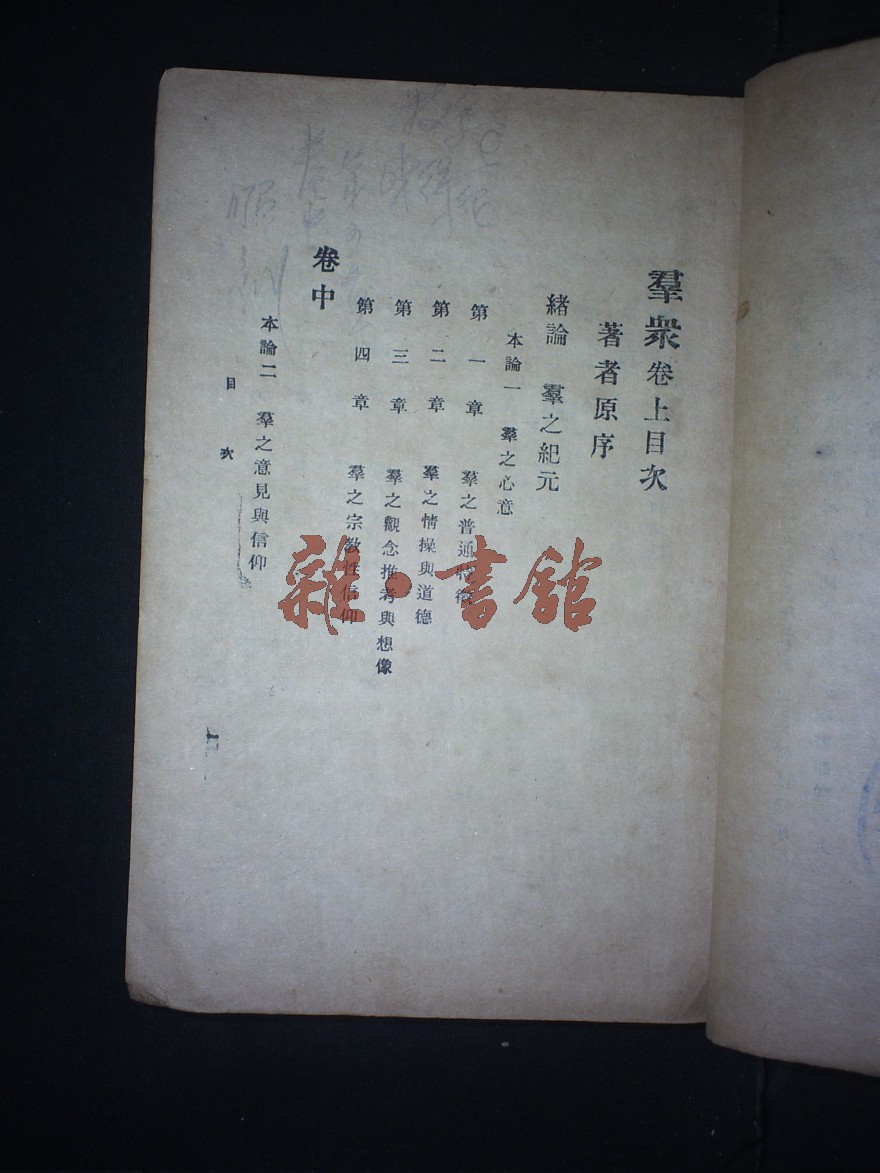 羣衆卷上目次
著者原序
緒論　羣之紀元
本論一　羣之心意
第一章　羣之普通特徵
第二章　羣之情操與道德
第三章　羣之觀念推考與想像
第四章　羣之宗教性信仰
卷中
本論二　羣之意見與信仰
目次
一
雜·書館